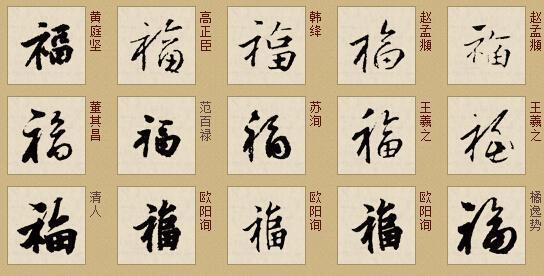 福 黄庭坚 福 高正臣 福 韩绛 福 赵孟頫 福 赵孟頫
福 董其昌 福 范百禄 福 苏洵 福 王羲之 福 王羲之
福 清人 福 欧阳询 福 欧阳询 福 欧阳询 福 橘逸势